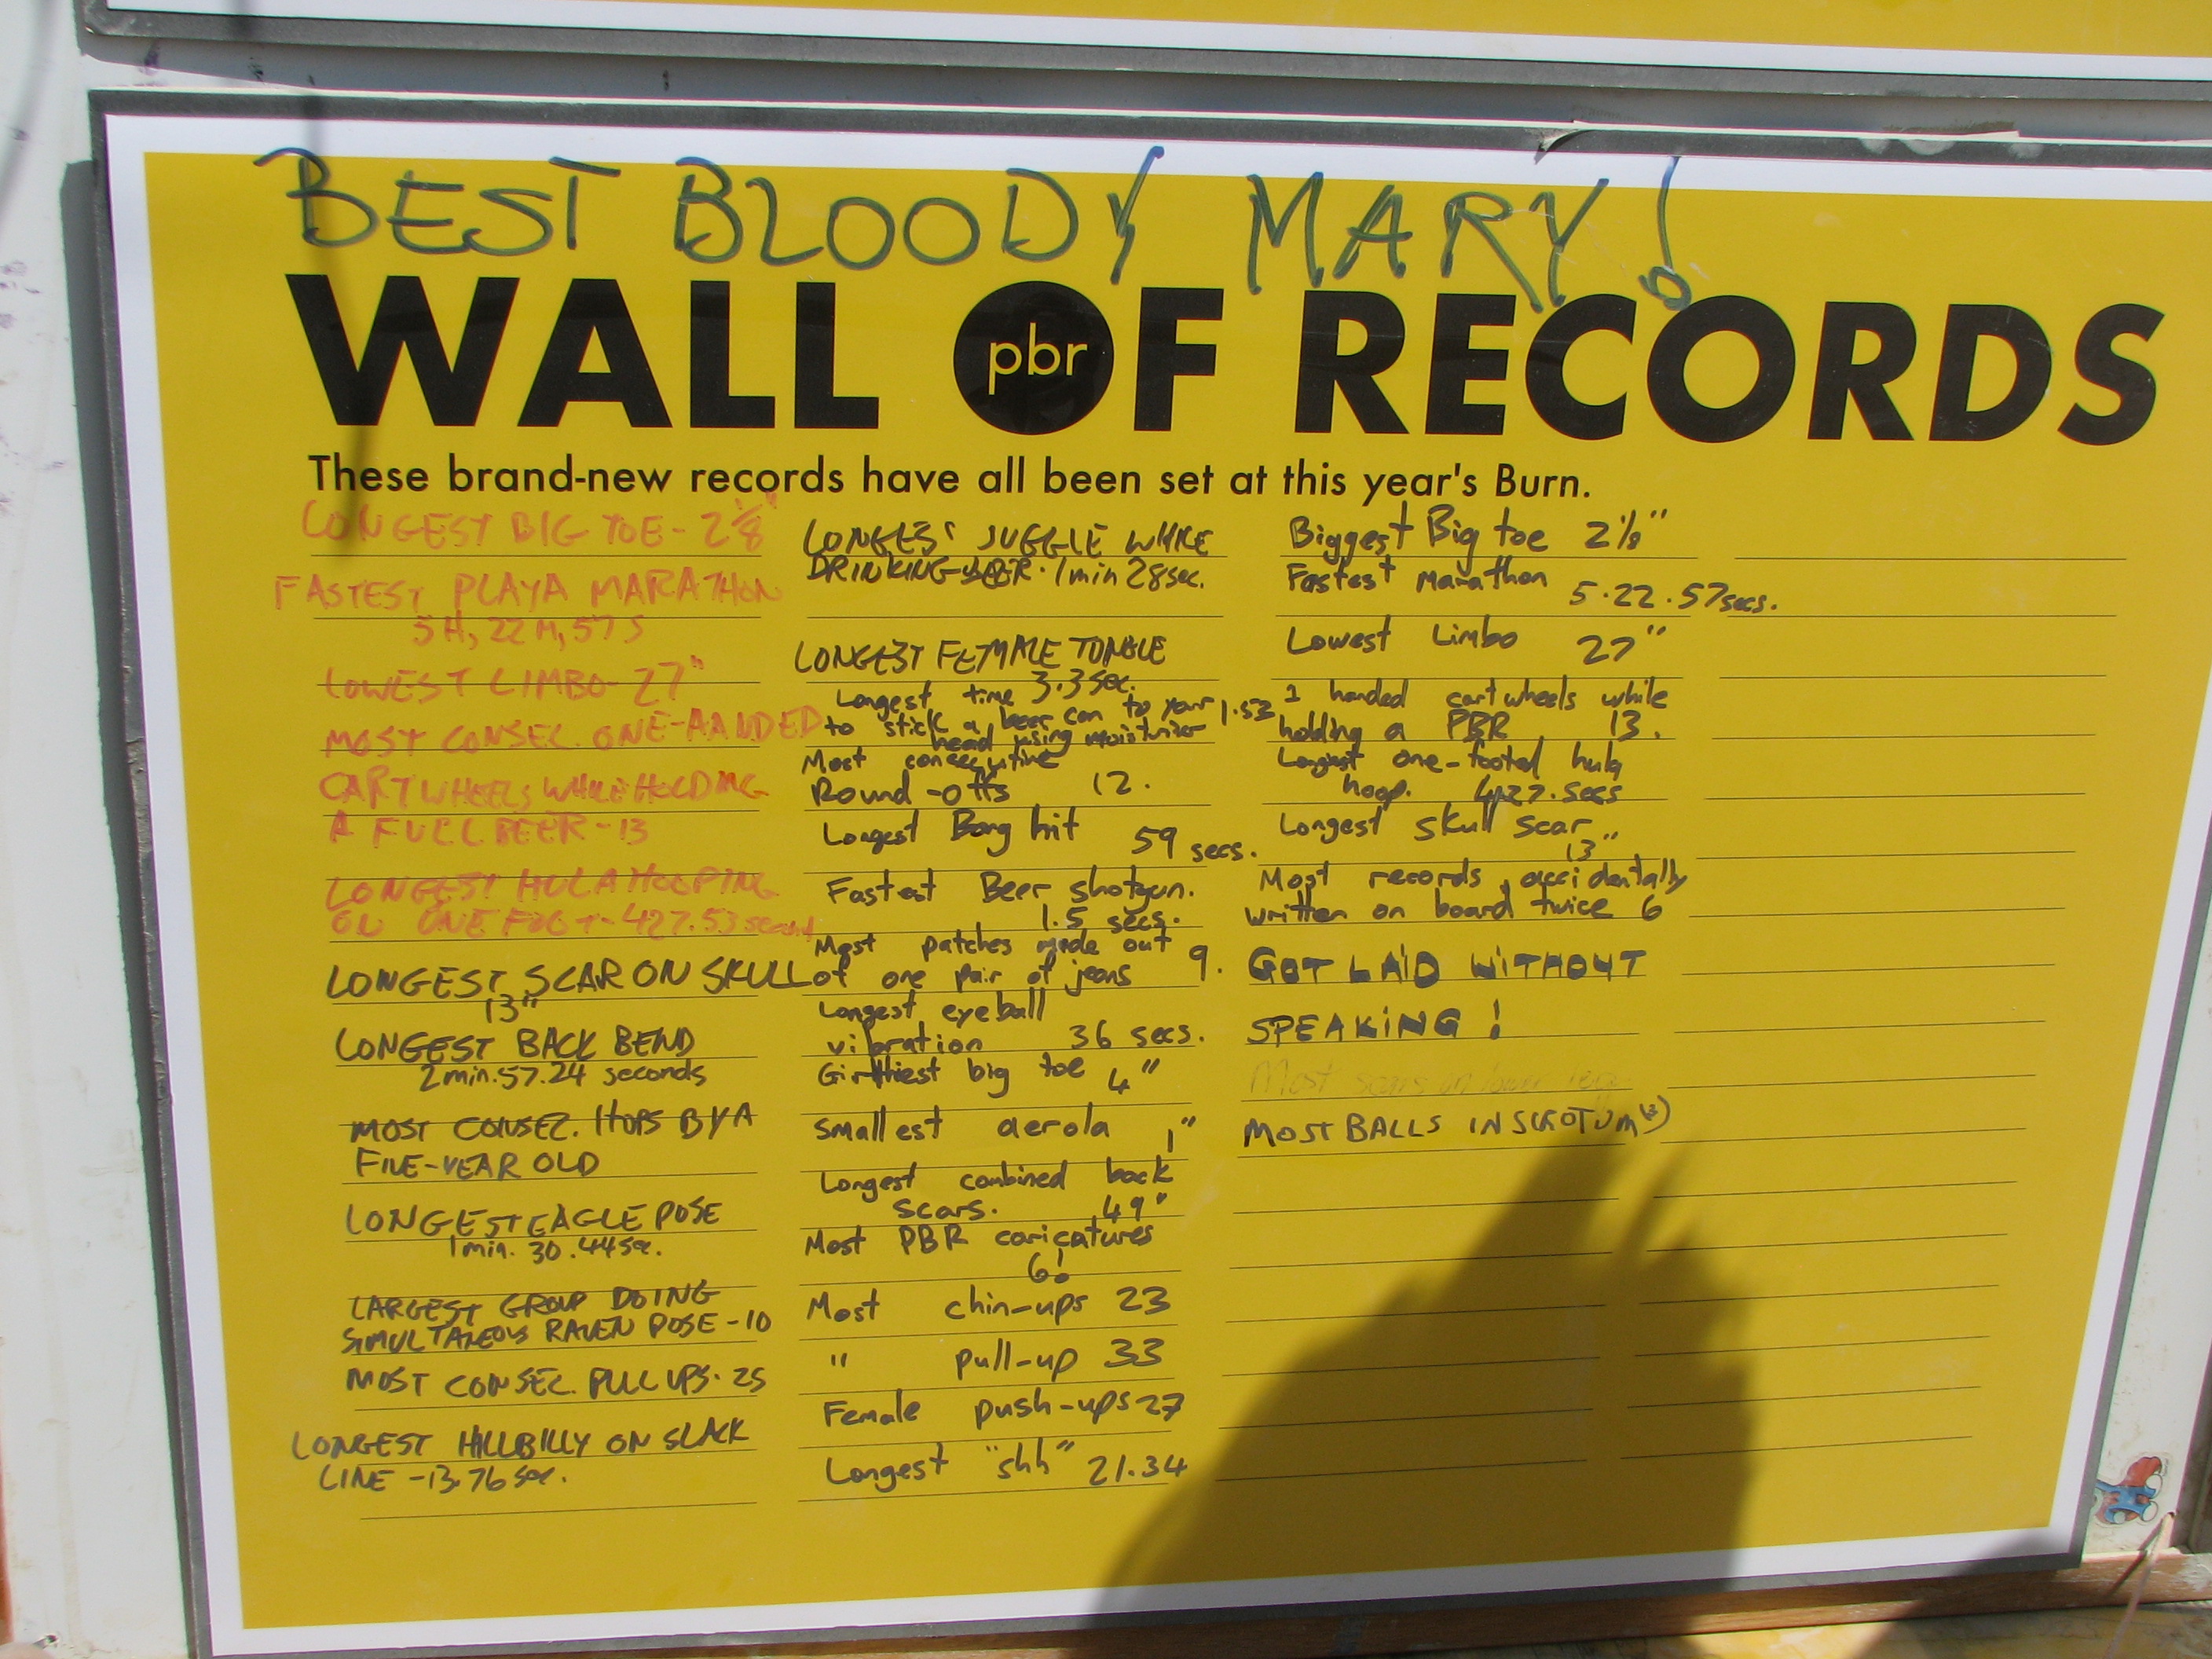 BEST BLOODY MARY!
WALL OF RECORDS
pbr
These brand-new records have all been set at this year's Burn.
LONGEST BIG TOE - 2 1/8"
FASTEST PLAYA MARATHON
5H, 22M, 57S
LOWEST LIMBO - 27"
MOST CONSEC. ONE-HANDED
CARTWHEELS WHILE HOLDING
A FULL BEER - 13
LONGEST HULA HOOPING
ON ONE FOOT - 427.53 seconds
LONGEST SCAR ON SKULL
13"
LONGEST BACK BEND
2min.57.24 seconds
MOST CONSEC. HOPS BY A
FIVE-YEAR OLD
LONGEST EAGLE POSE
1min. 30.44 sec.
LARGEST GROUP DOING
SIMULTANEOUS RAVEN POSE - 10
MOST CONSEC. PULL UPS. 25
LONGEST HILLBILLY ON SLACK
LINE - 13.76 sec.
LONGEST JUGGLE WHILE
DRINKING BEER. 1min 28sec.
LONGEST FEMALE TONGUE
3.3 sec.
Longest time
to stick a beer can to your 1.53
head using moisturizer
Most consecutive
Round-offs 12.
Longest Bong hit
59 secs.
Fastest Beer shotgun.
1.5 secs.
Most patches made out
of one pair of jeans 9.
Longest eyeball
vibration 36 secs.
Girthiest big toe 4"
Smallest aerola 1"
Longest combined back
scars. 49"
Most PBR caricatures
6!
Most chin-ups 23
" pull-up 33
Female push-ups 27
Longest "shh" 21.34
Biggest Big toe 2 1/8"
Fastest Marathon
5.22.57secs.
Lowest Limbo 27"
1 handed cartwheels while
holding a PBR 13.
Longest one-footed hula
hoop. 427.secs
Longest skull scar
13"
Most records accidentally
written on board twice 6
GOT LAID WITHOUT
SPEAKING!
Most scars on lower leg
MOST BALLS IN SCROTUM (3)